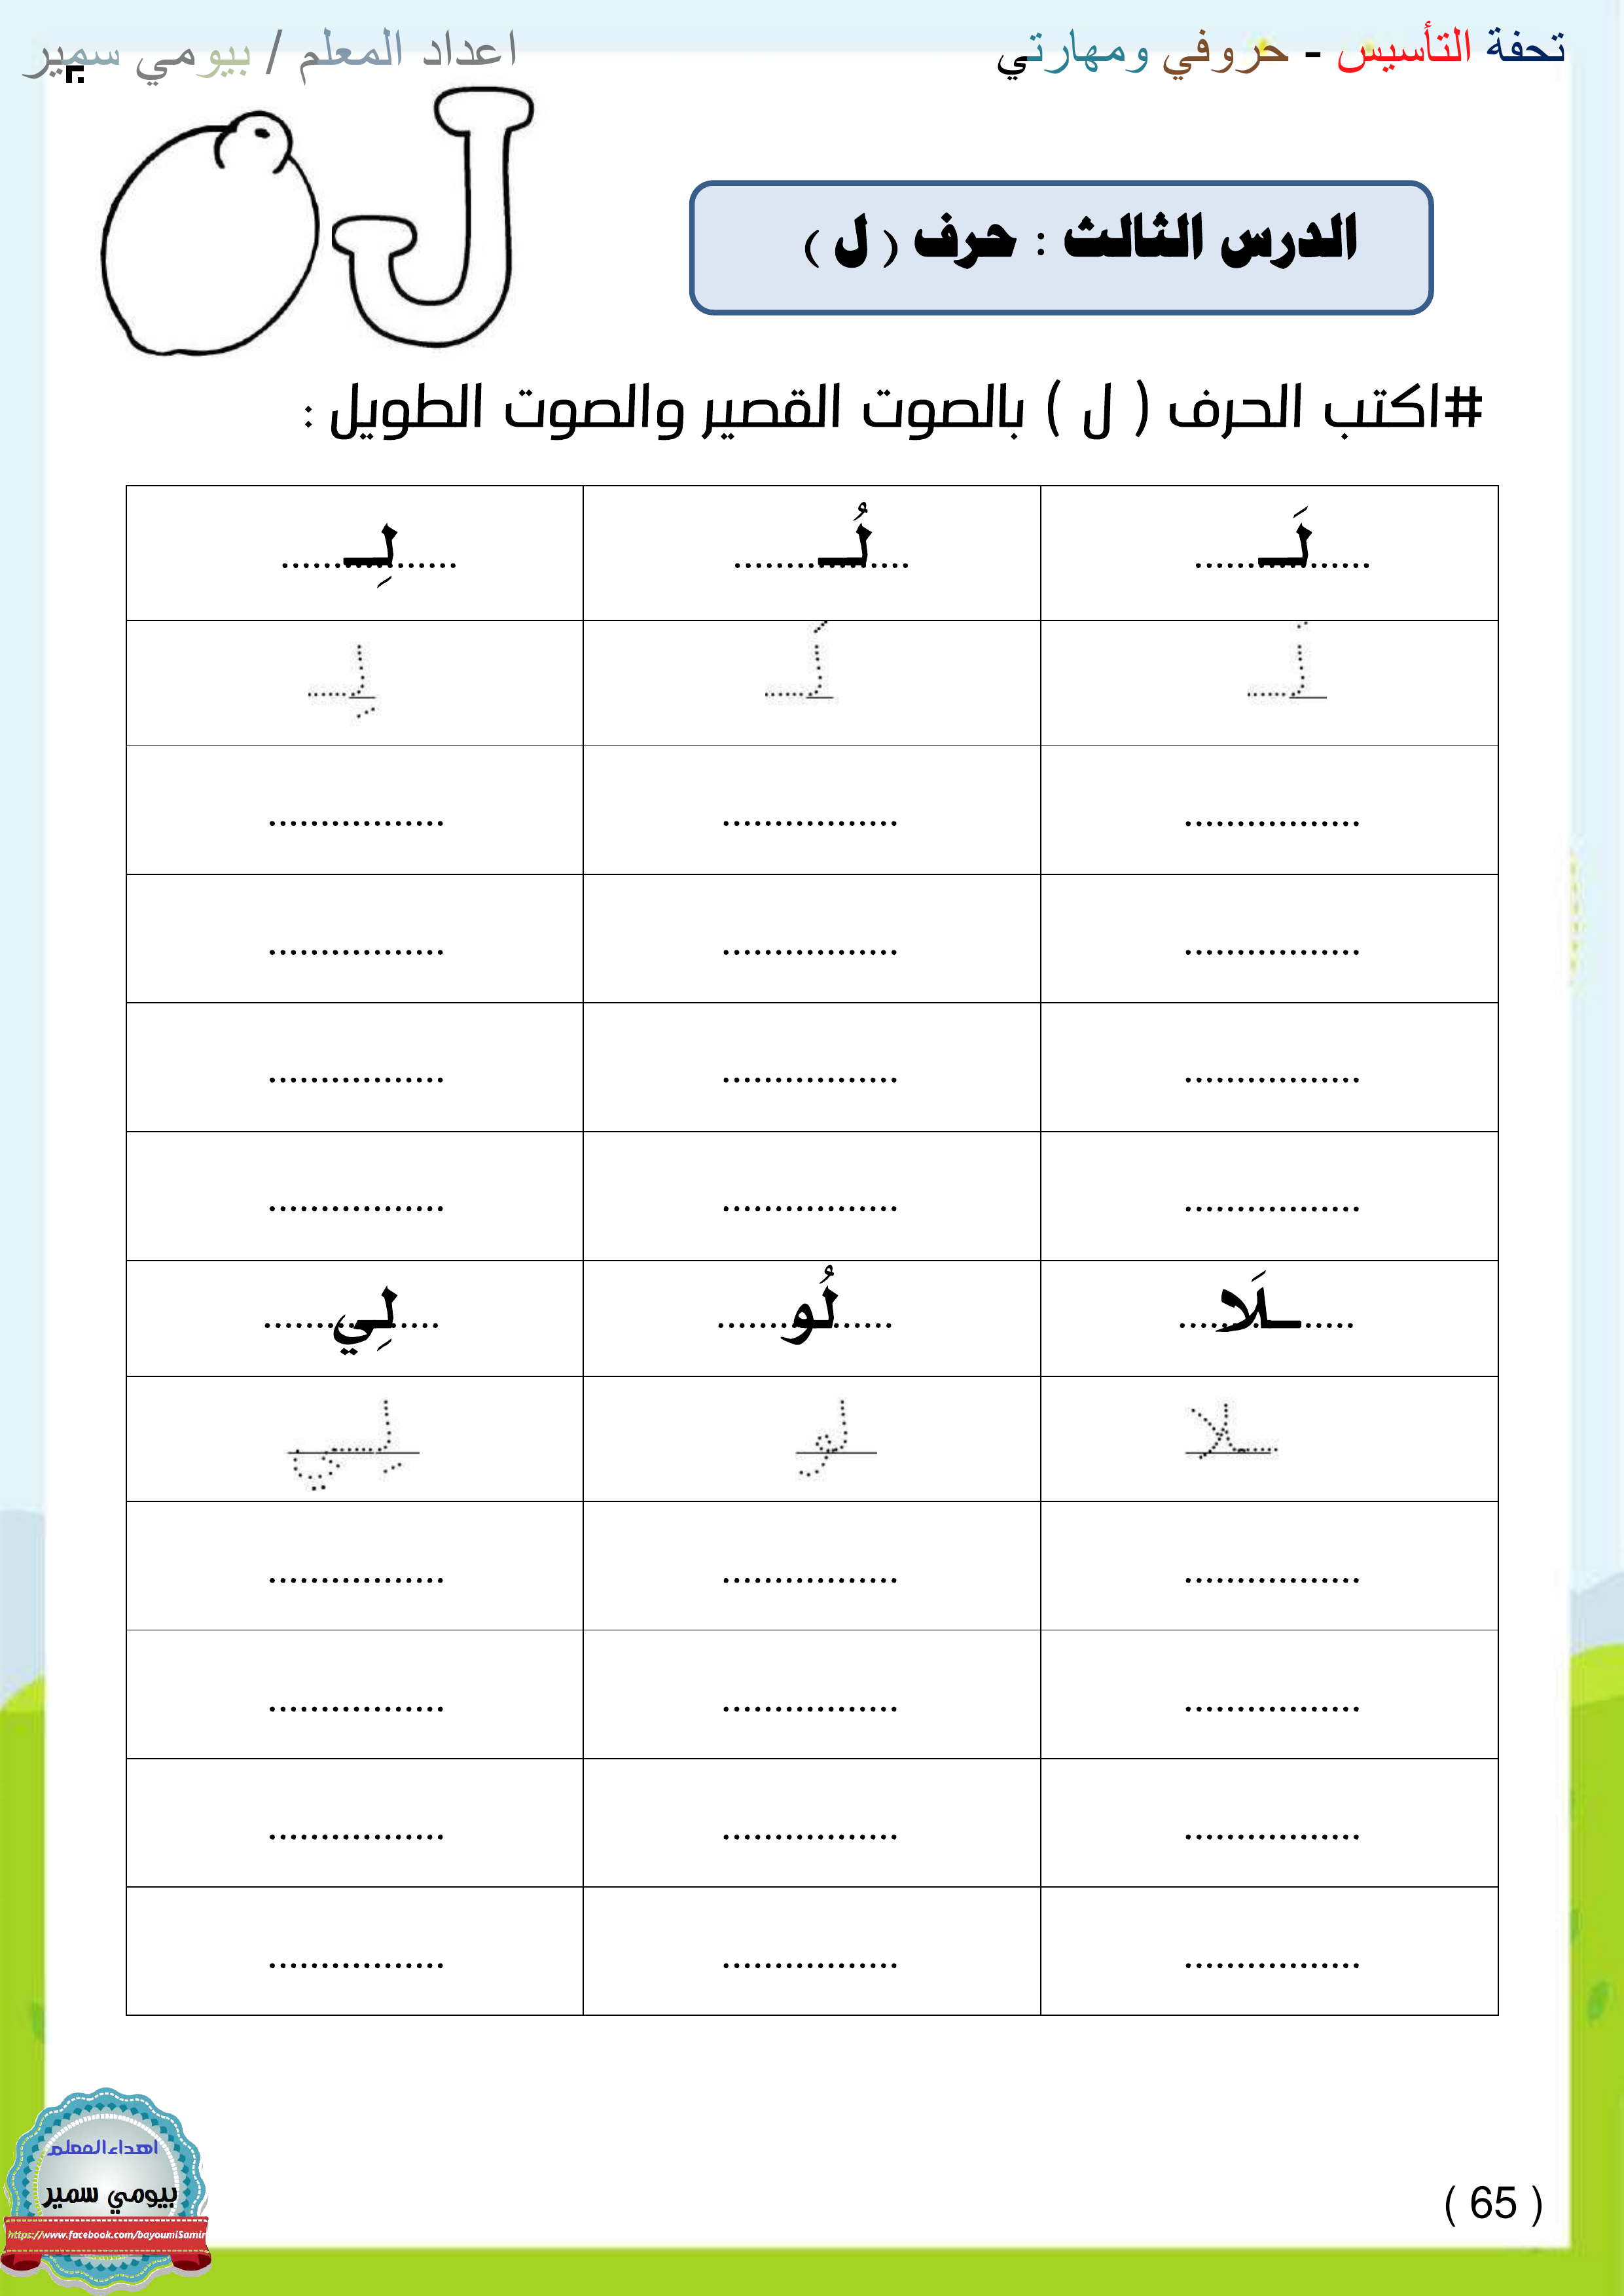 تحفة التأسيس - حروفي ومهارتي
اعداد المعلم / بيومي سمير
ل
الدرس الثالث : حرف ( ل )
#اكتب الحرف ( ل ) بالصوت القصير والصوت الطويل :
لَـ لُـ لِـ
لـَ لـُ لـِ
................. ................. .................
................. ................. .................
................. ................. .................
................. ................. .................
ـلَا لُو لِي
ـلا لو لـِي
................. ................. .................
................. ................. .................
................. ................. .................
................. ................. .................
اهداء المعلم
بيومي سمير
https://www.facebook.com/bayoumiSamir
( 65 )